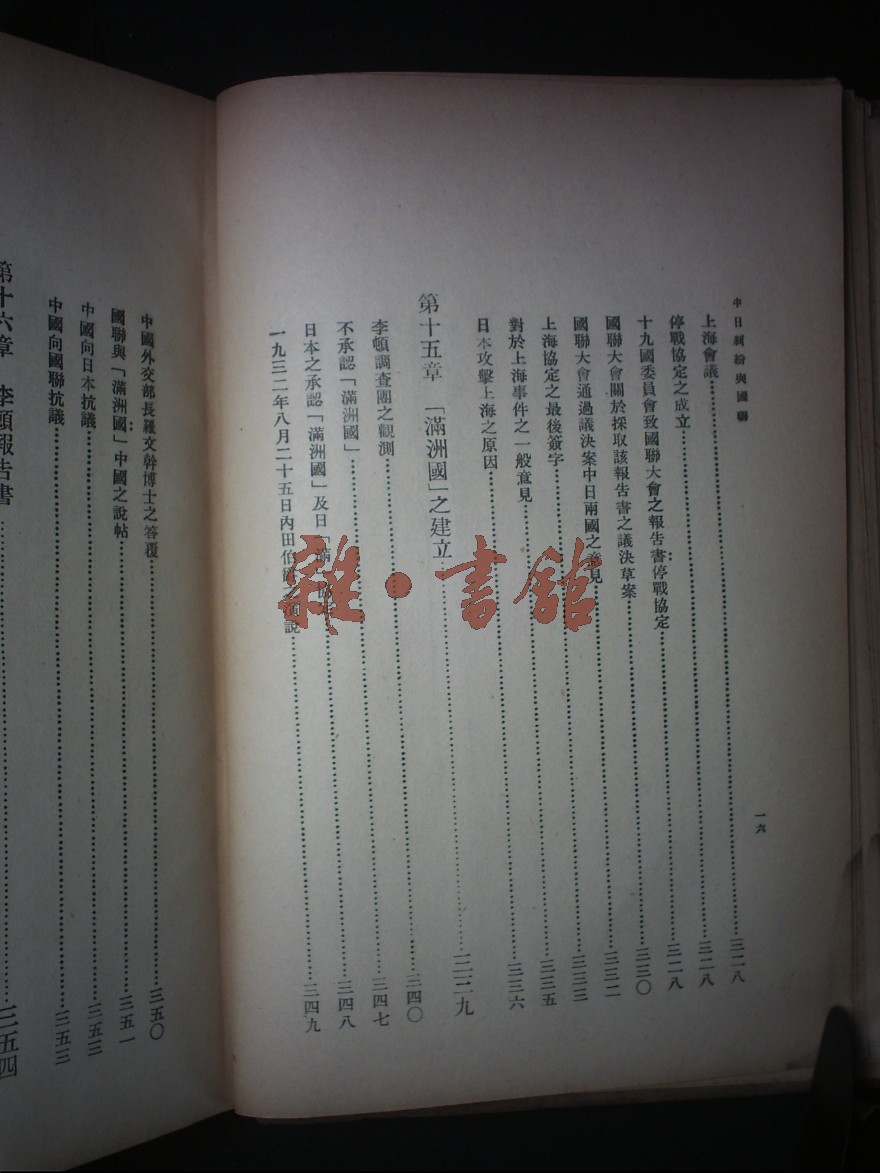 中日糾紛與國聯
一六
上海會議……三二八
停戰協定之成立……三二八
十九國委員會致國聯大會之報告書:停戰協定……三二八
國聯大會關於採取該報告書之議決草案……三三〇
國聯大會通過議決案中日兩國之意見……三三二
上海協定之最後簽字……三三三
對於上海事件之一般意見……三三五
日本攻擊上海之原因……三三六
第十五章 「滿洲國」之建立……三三九
李頓調查團之觀測……三四〇
不承認「滿洲國」……三四七
日本之承認「滿洲國」及日「滿」協定……三四八
一九三二年八月二十五日內田伯爵之演說……三四九
中國外交部長羅文幹博士之答覆……三五〇
國聯與「滿洲國」:中國之說帖……三五一
中國向日本抗議……三五三
中國向國聯抗議……三五三
第十六章 李頓報告書……三五四
雜·書館